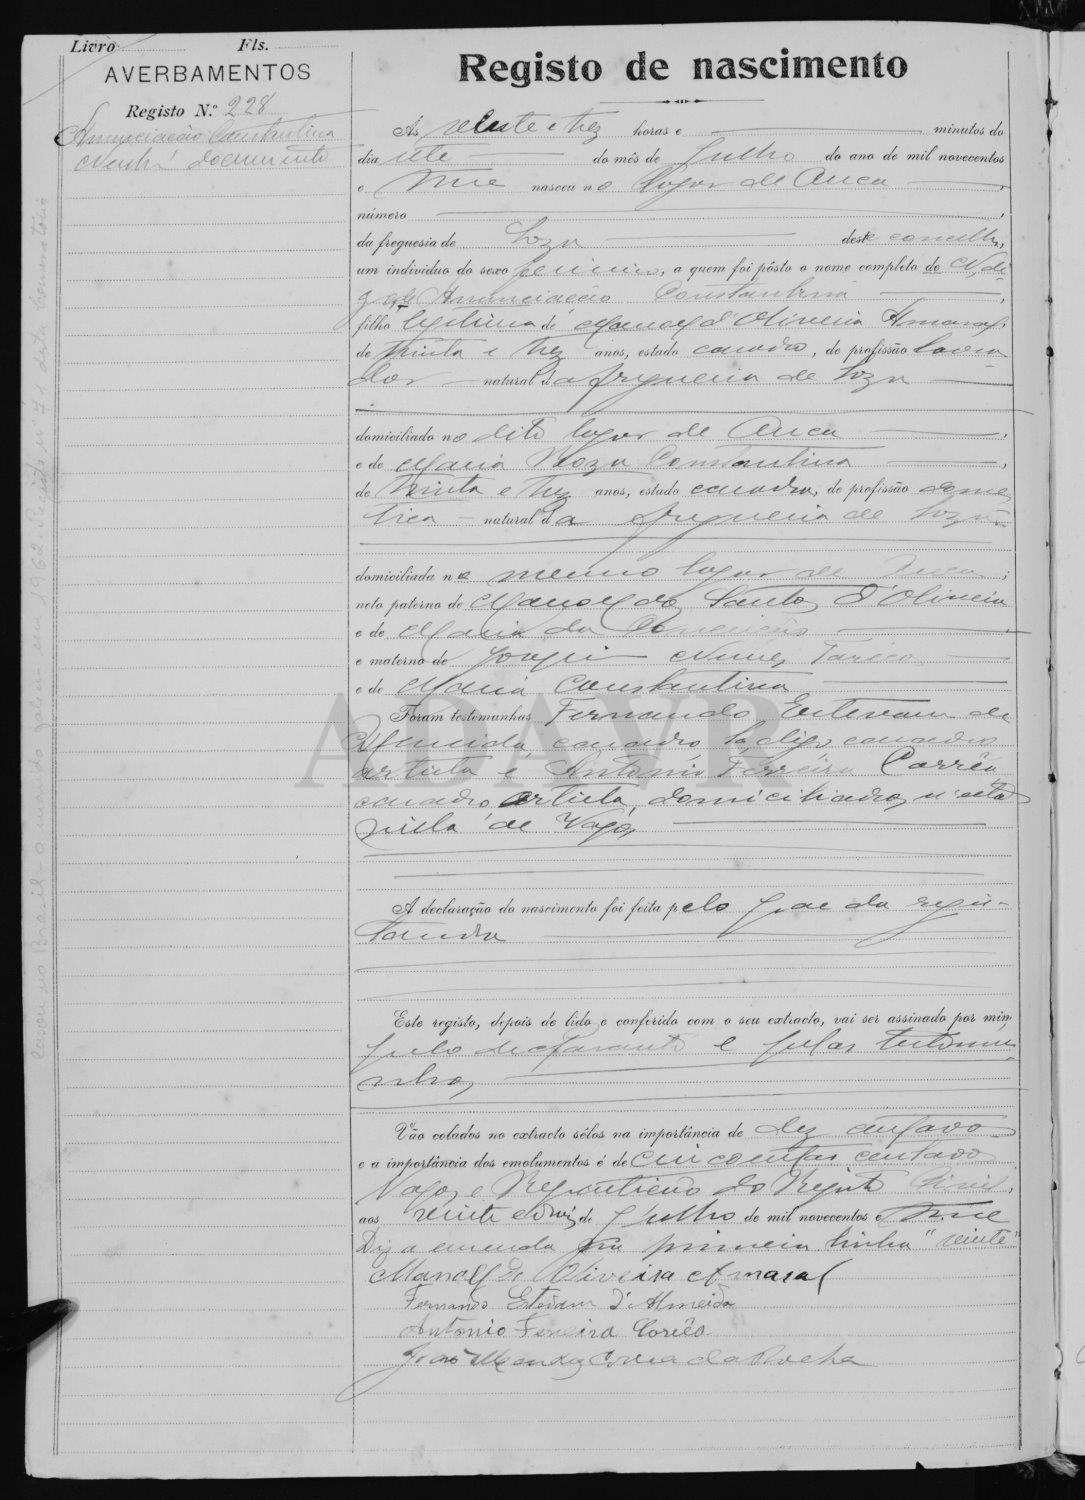 Livro Fls.
AVERBAMENTOS
Registo N.º 228
Annunciação Constantina
documento
Registo de nascimento
Ás veinte e trez horas e minutos do
dia sete do mês de Julho do ano de mil novecentos
e nasceu no logar de
número
da freguesia de Soza deste concelho,
um individuo do sexo feminino, a quem foi pôsto o nome completo de
Annunciação Constantina
filha legitima de Manoel d'Oliveira Amaral,
de trinta e trez anos, estado casado, de profissão lavra
dor natural da freguesia de Soza
domiciliado no dito logar de
e de Maria Roza Constantina
de trinta e trez anos, estado casada, de profissão domes
tica natural da freguesia de Soza
domiciliada no mesmo logar de
neto paterno de Manoel dos Santos d'Oliveira
e de Maria da Conceição
e materno de Joaquim Nunes
e de Maria Constantina
ADAVR
Foram testemunhas Fernando Estevam de
Almeida, casado, digo casado
artista e Antonio Ferreira Corrêa
casado artista, domiciliados n'esta
villa de Vagos
A declaração do nascimento foi feita pelo pae da regis-
tanda
Este registo, depois de lido e conferido com o seu extracto, vai ser assinado por mim
pelo declarante e pelas testemu
nhas
Vão colados no extracto sêlos na importância de dez centavos
e a importância dos emolumentos é de cincoenta centavos
Vagos e Repartição do Registo Civil,
aos veinte e de Julho de mil novecentos e
Diz a emenda na primeira linha "veinte"
Manoel de Oliveira Amaral
Fernando Estevam d'Almeida
Antonio Ferreira Corrêa
João Mendes Correa da Rocha